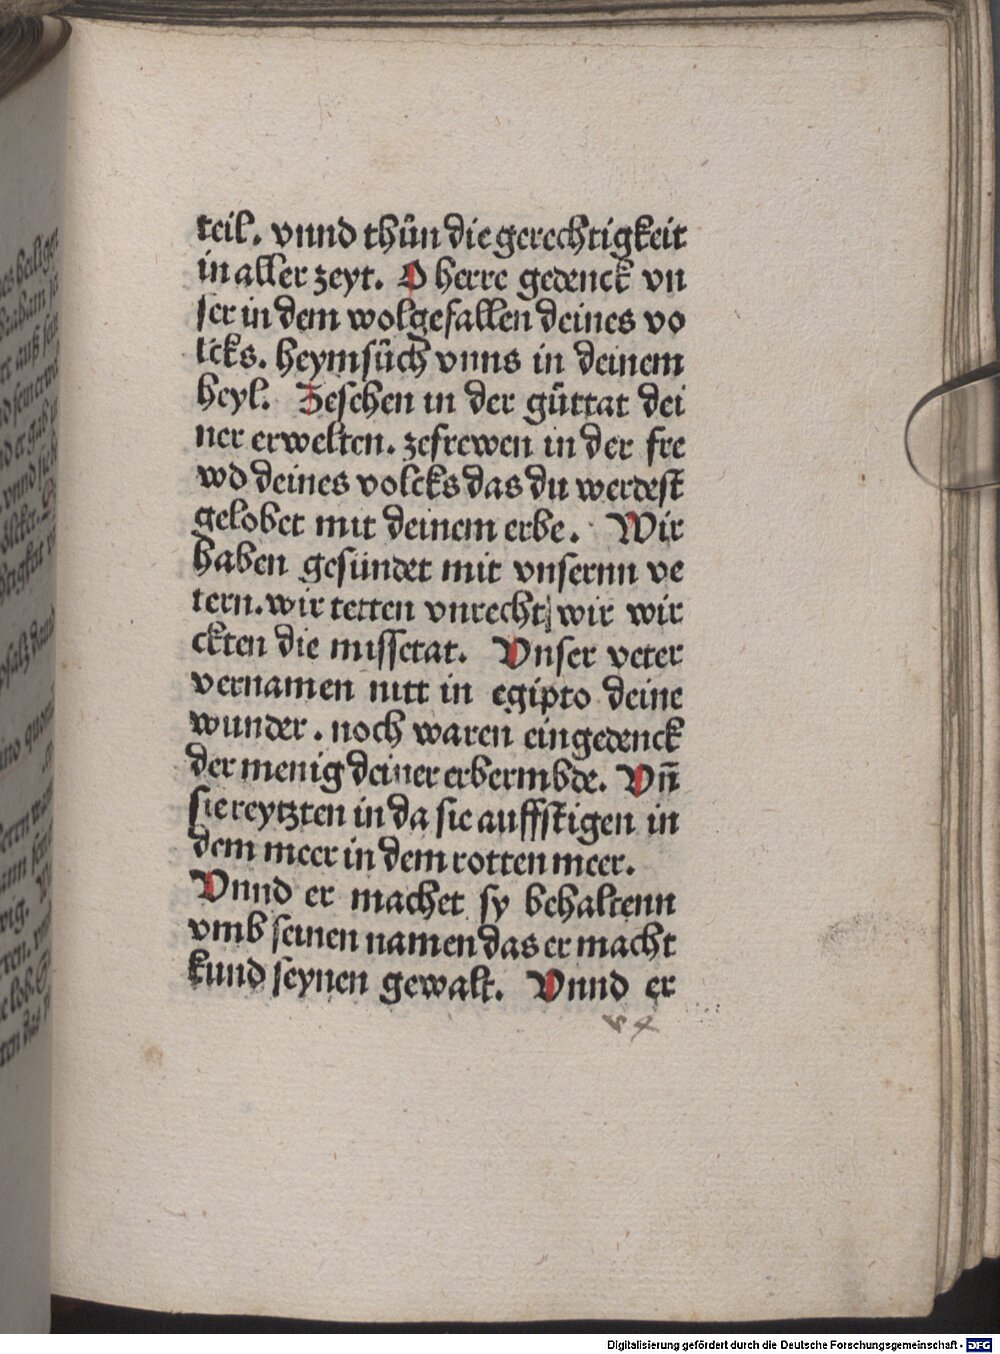 teil. vnnd thůn die gerechtigkeit
in aller zeyt. O herre gedenck vn
ser in dem wolgefallen deines vo
lcks. heymsůch vnns in deinem
heyl. Zesehen in der gůttat dei
ner erwelten. zefrewen in der fre
wd deines volcks das du werdest
gelobet mit deinem erbe. Wir
haben gesündet mit vnsernn ve
tern. wir tetten vnrecht wir wir
ckten die missetat. Vnser veter
vernamen nitt in egipto deine
wunder. noch waren eingedenck
der menig deiner erbermbde. Vn̄
sie reytzten in da sie auffstigen in
dem meer in dem rotten meer.
Vnnd er machet sy behaltenn
vmb seinen namen das er macht
kund seynen gewalt. Vnnd er
Digitalisierung gefördert durch die Deutsche Forschungsgemeinschaft - DFG